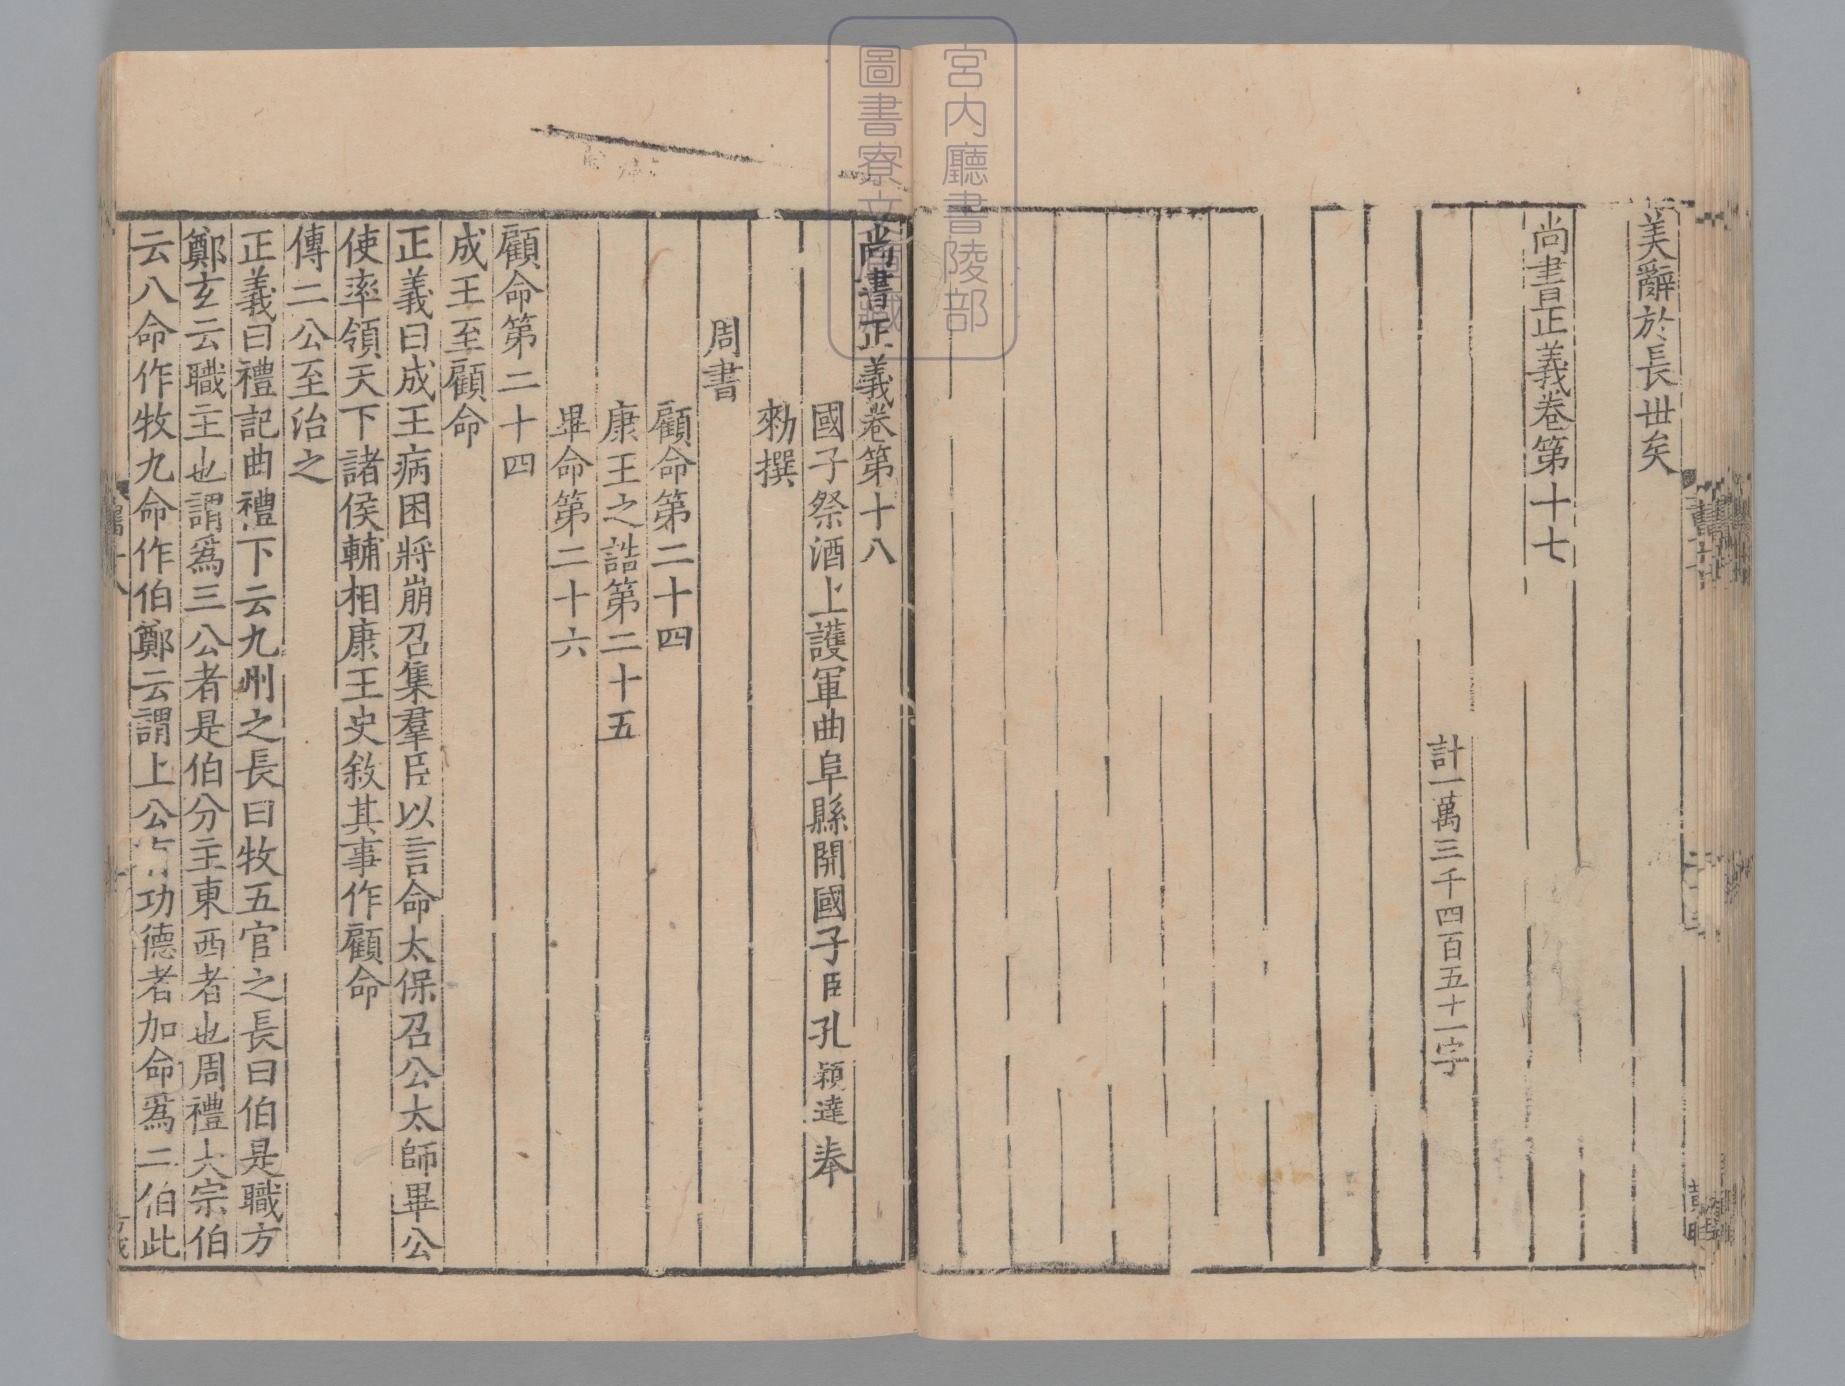 美辭於長世矣
尚書正義卷第十七
計一萬三千四百五十一字
尚書正義卷第十八
國子祭酒上護軍曲阜縣開國子臣孔穎達奉
勑撰
周書
顧命第二十四
康王之誥第二十五
畢命第二十六
顧命第二十四
成王至顧命
正義曰成王病困將崩召集羣臣以言命太保召公太師畢公
使率領天下諸侯輔相康王史敘其事作顧命
傳二公至治之
正義曰禮記曲禮下云九州之長曰牧五官之長曰伯是職方
鄭玄云職主也謂爲三公者是伯分主東西者也周禮大宗伯
云八命作牧九命作伯鄭云謂上公有功德者加命爲二伯此
宮內廳書陵部
圖書寮文庫藏